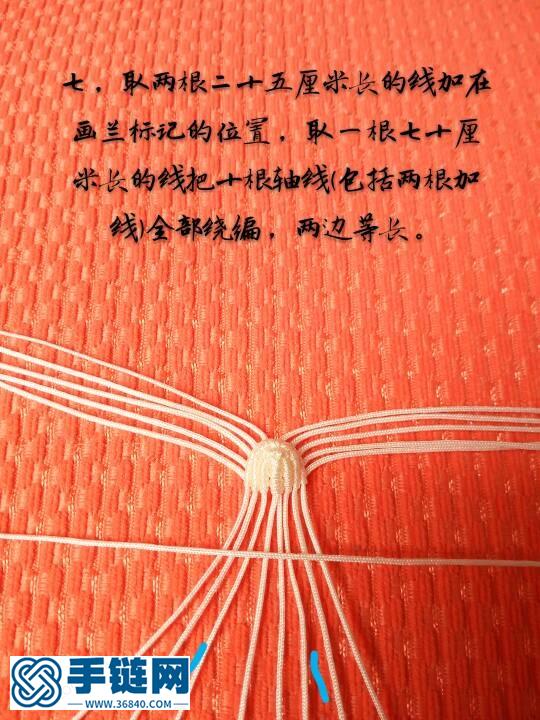 七，取两根二十五厘米长的线加在
画兰标记的位置，取一根七十厘
米长的线把十根轴线(包括两根加
线)全部绕编，两边等长。
手链网
WWW.36840.COM